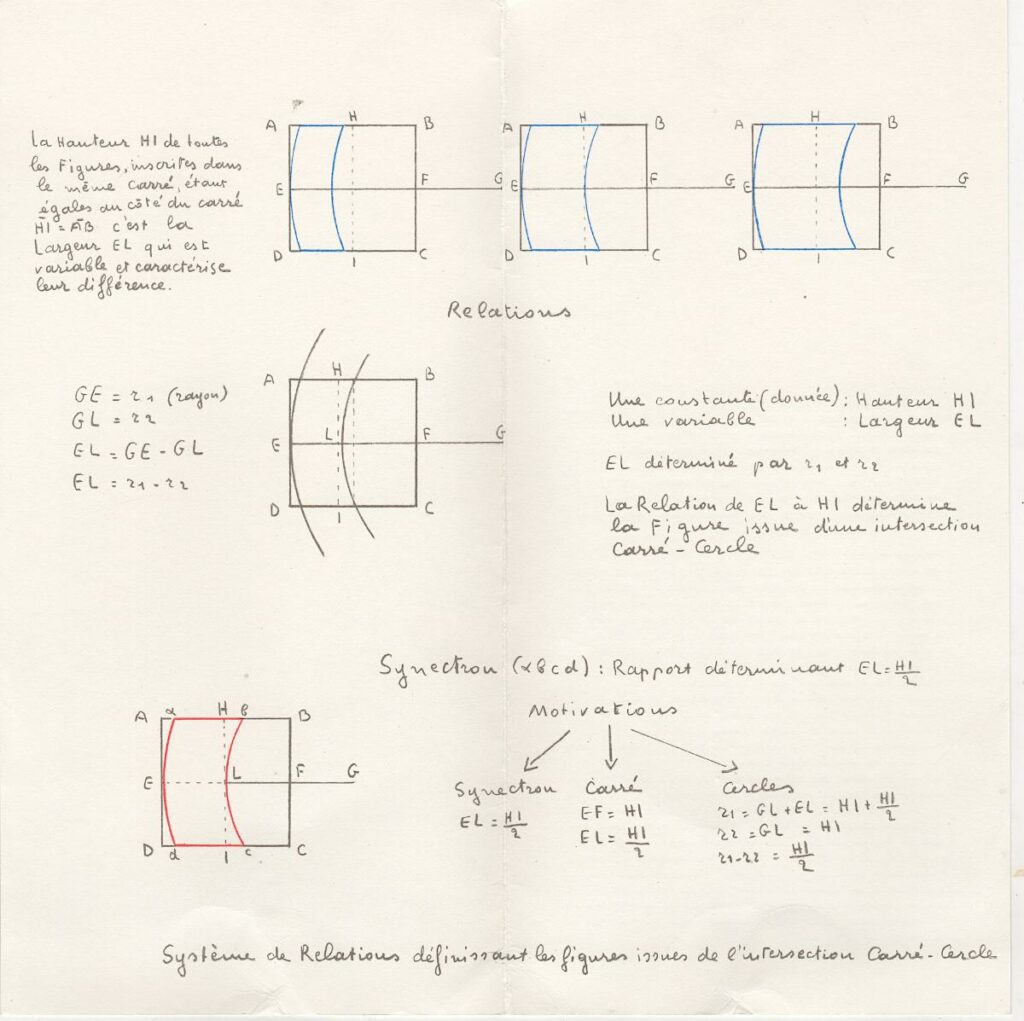 La Hauteur HI de toutes
les Figures, inscrites dans
le même Carré, étant
égales au côté du carré
HI = AB c'est la
Largeur EL qui est
variable et caractérise
leur différence.
A H B
E F G
D I C
A H B
E F G
D I C
A H B
E F G
D I C
Relations
GE = r1 (rayon)
GL = r2
EL = GE - GL
EL = r1 - r2
A H B
E L F G
D I C
Une constante (donnée) : Hauteur HI
Une variable : Largeur EL
EL déterminé par r1 et r2
La Relation de EL à HI détermine
la Figure issue d'une intersection
Carré - Cercle
Synectron (abcd) : Rapport déterminant EL = HI/2
A a H b B
E L F G
D d I c C
Motivations
Synectron
EL = HI/2
Carré
EF = HI
EL = HI/2
Cercles
r1 = GL + EL = HI + HI/2
r2 = GL = HI
r1-r2 = HI/2
Système de Relations définissant les figures issues de l'intersection Carré - Cercle